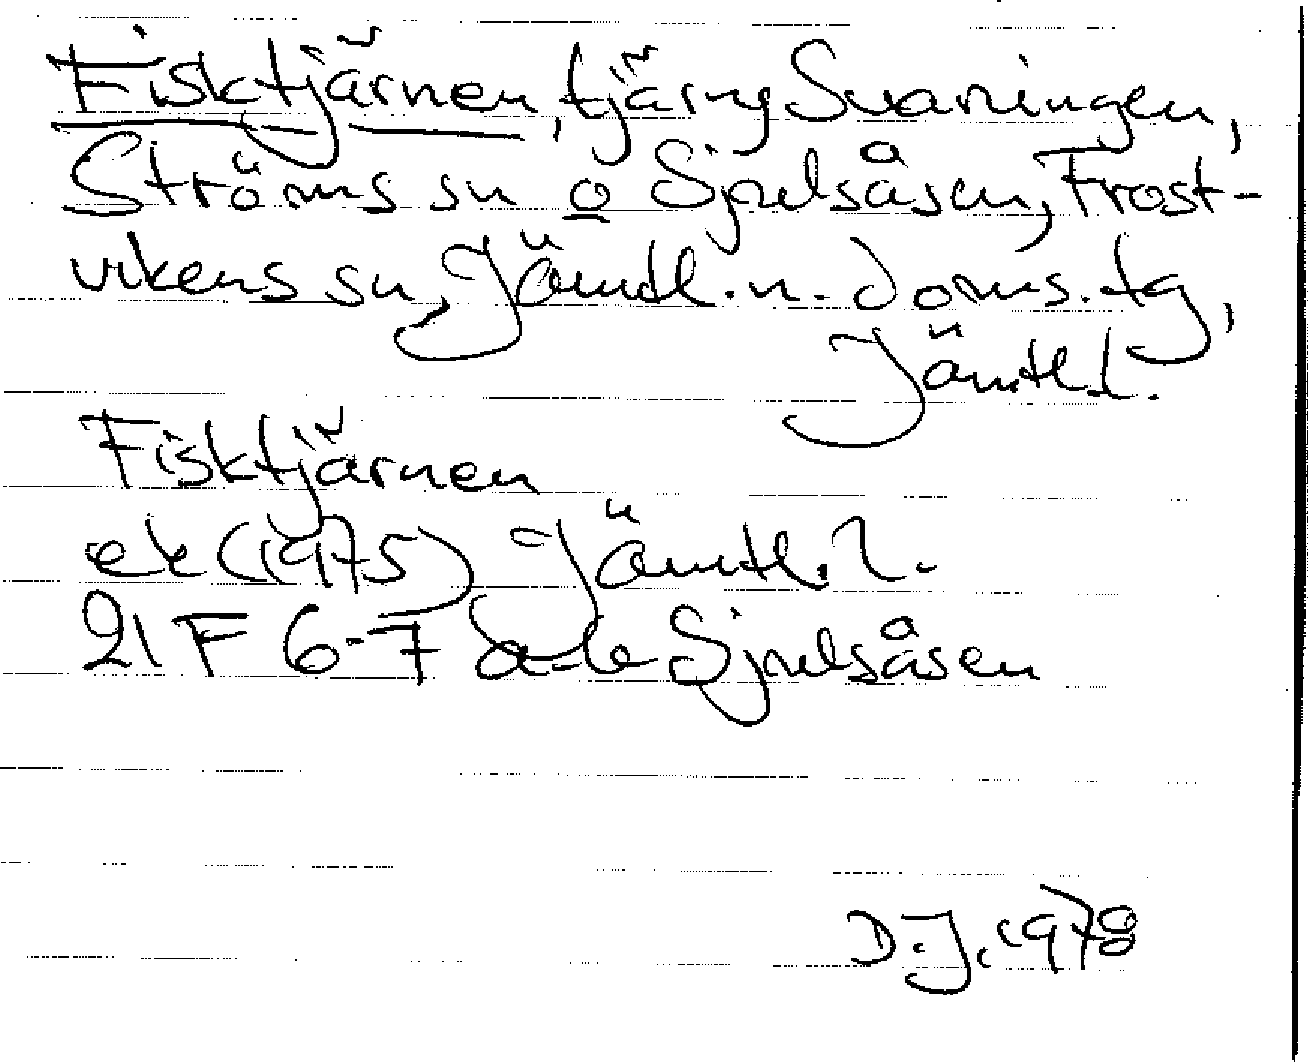 Fisktjärnen, tjärn, Svaningen,
Ströms sn o Sjpulsåsen, Frost-
vikens sn, Jämtl. n. doms. tg,
Jämtl.
Fisktjärnen
ek (1975) Jämtl. l.
21 F 6-7 a-b Sjpulsåsen
D.J. 1978